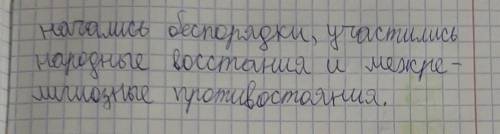 начались беспорядки, участились
народные восстания и межре-
лигиозные противостояния.